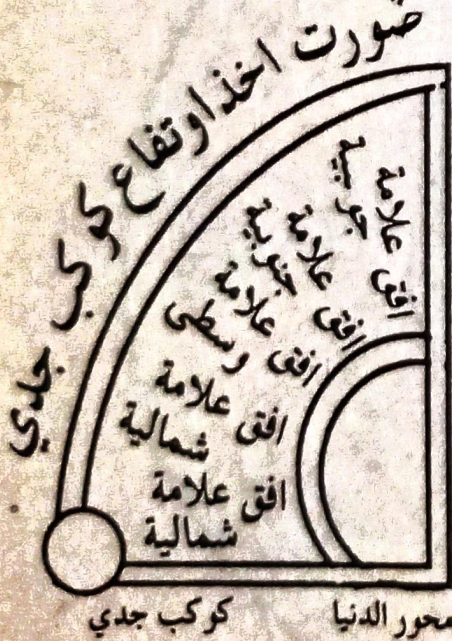 ضورت اخذ اوتفاع كوكب جدي
افق علامة جوبية
افق علامة جنوبية
افق علامة وسطى
افق علامة شمالية
افق علامة شمالية
كوكب جدي
محور الدنيا